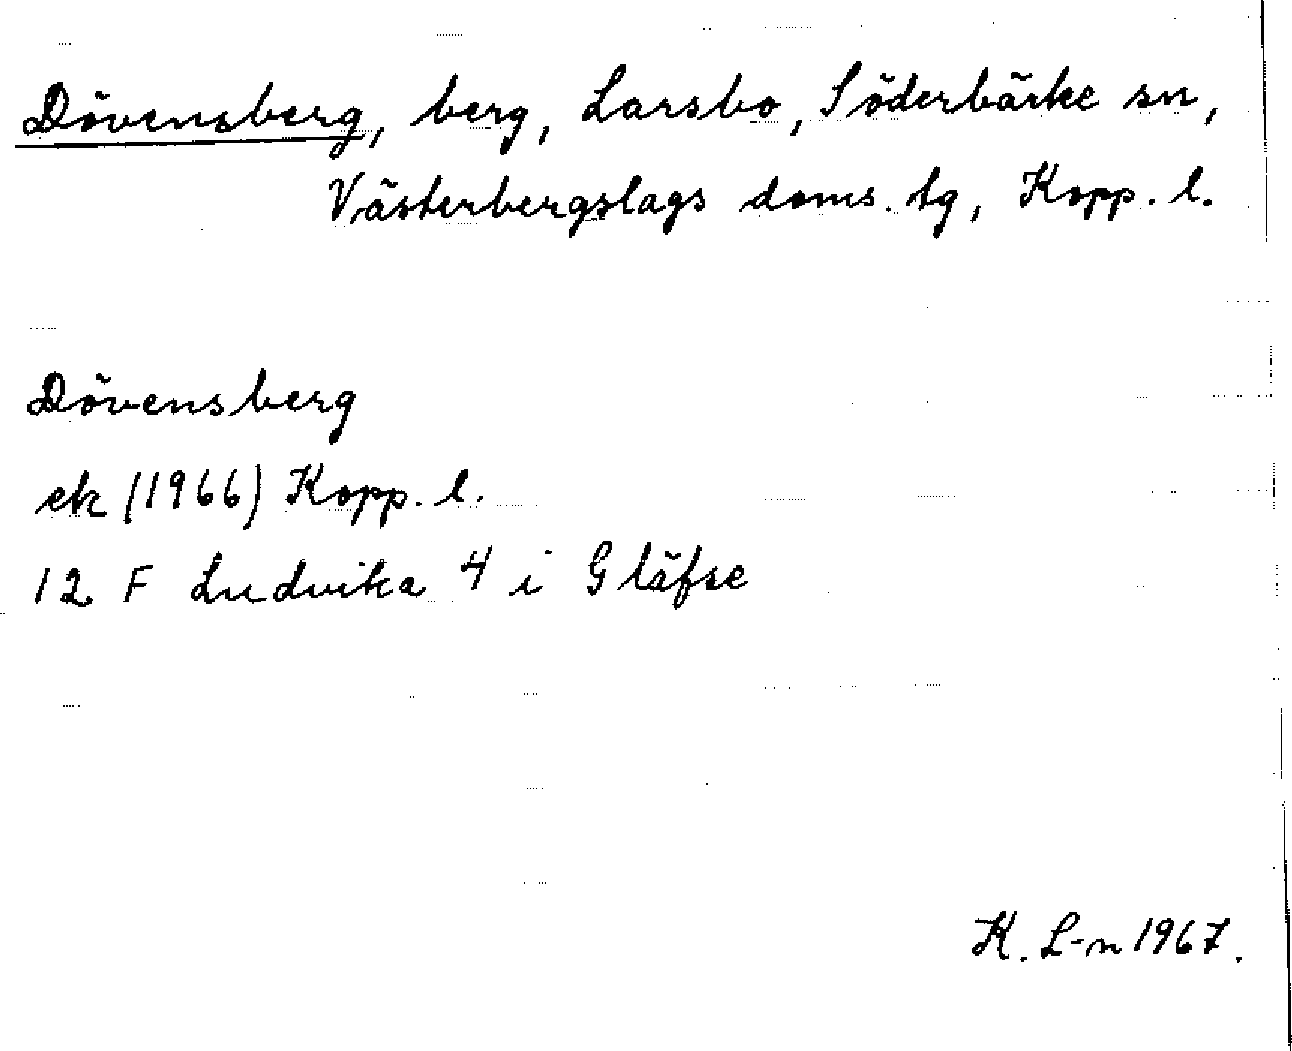 Dövensberg, berg, Larsbo, Söderbärke sn,
Västerbergslags doms. tg, Kopp. l.
Dövensberg
ek (1966) Kopp. l.
12 F Ludvika 4 i Gläfse
K. L-n 1967.